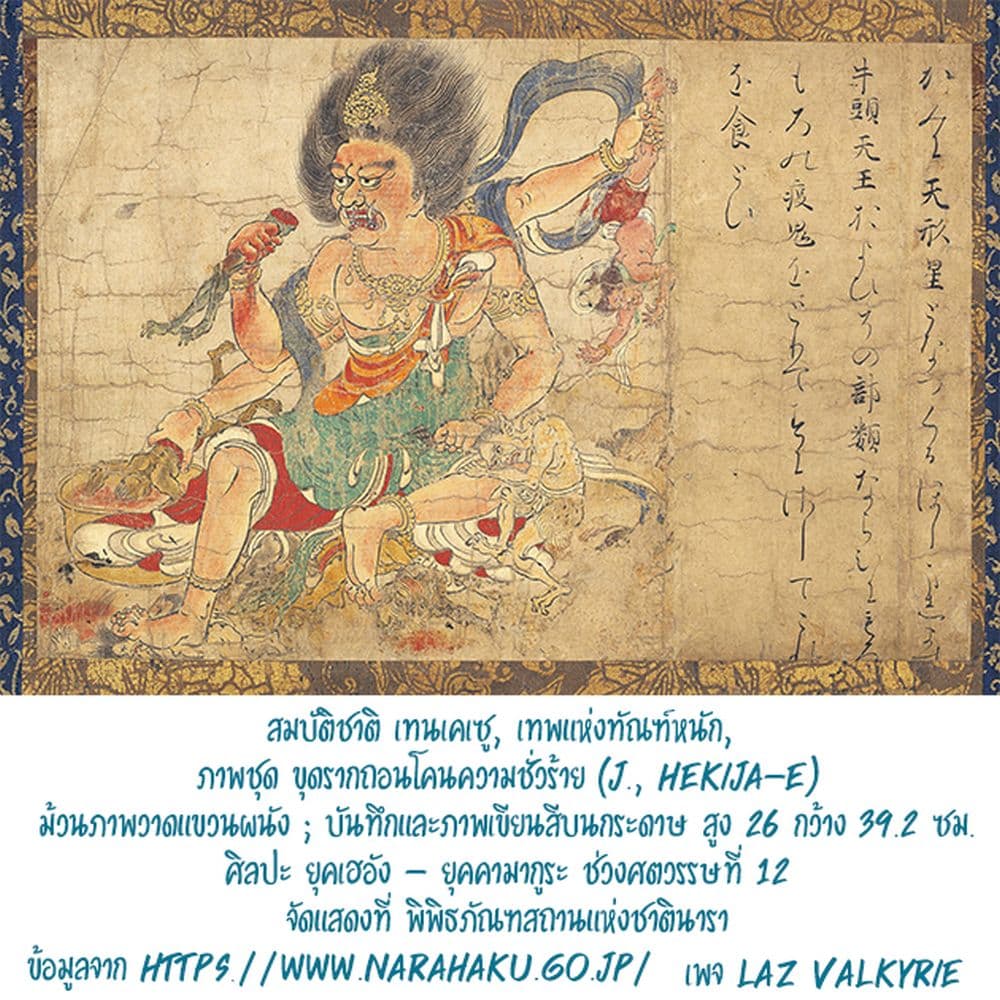 かみに天形星となつくるほしまします
牛頭天王およひその部類ならひにもろ
もろの疫鬼をとりてすにさしてこれ
を食とす
สมบัติชาติ เทนเคเซู, เทพแห่งทัณฑ์หนัก,
ภาพชุด ขุดรากถอนโคนความชั่วร้าย (J., HEKIJA-E)
ม้วนภาพวาดแขวนผนัง ; บันทึกและภาพเขียนสีบนกระดาษ สูง 26 กว้าง 39.2 ซม.
ศิลปะ ยุคเฮอัง – ยุคคามากูระ ช่วงศตวรรษที่ 12
จัดแสดงที่ พิพิธภัณฑสถานแห่งชาตินารา
ข้อมูลจาก HTTPS.//WWW.NARAHAKU.GO.JP/ เพจ LAZ VALKYRIE